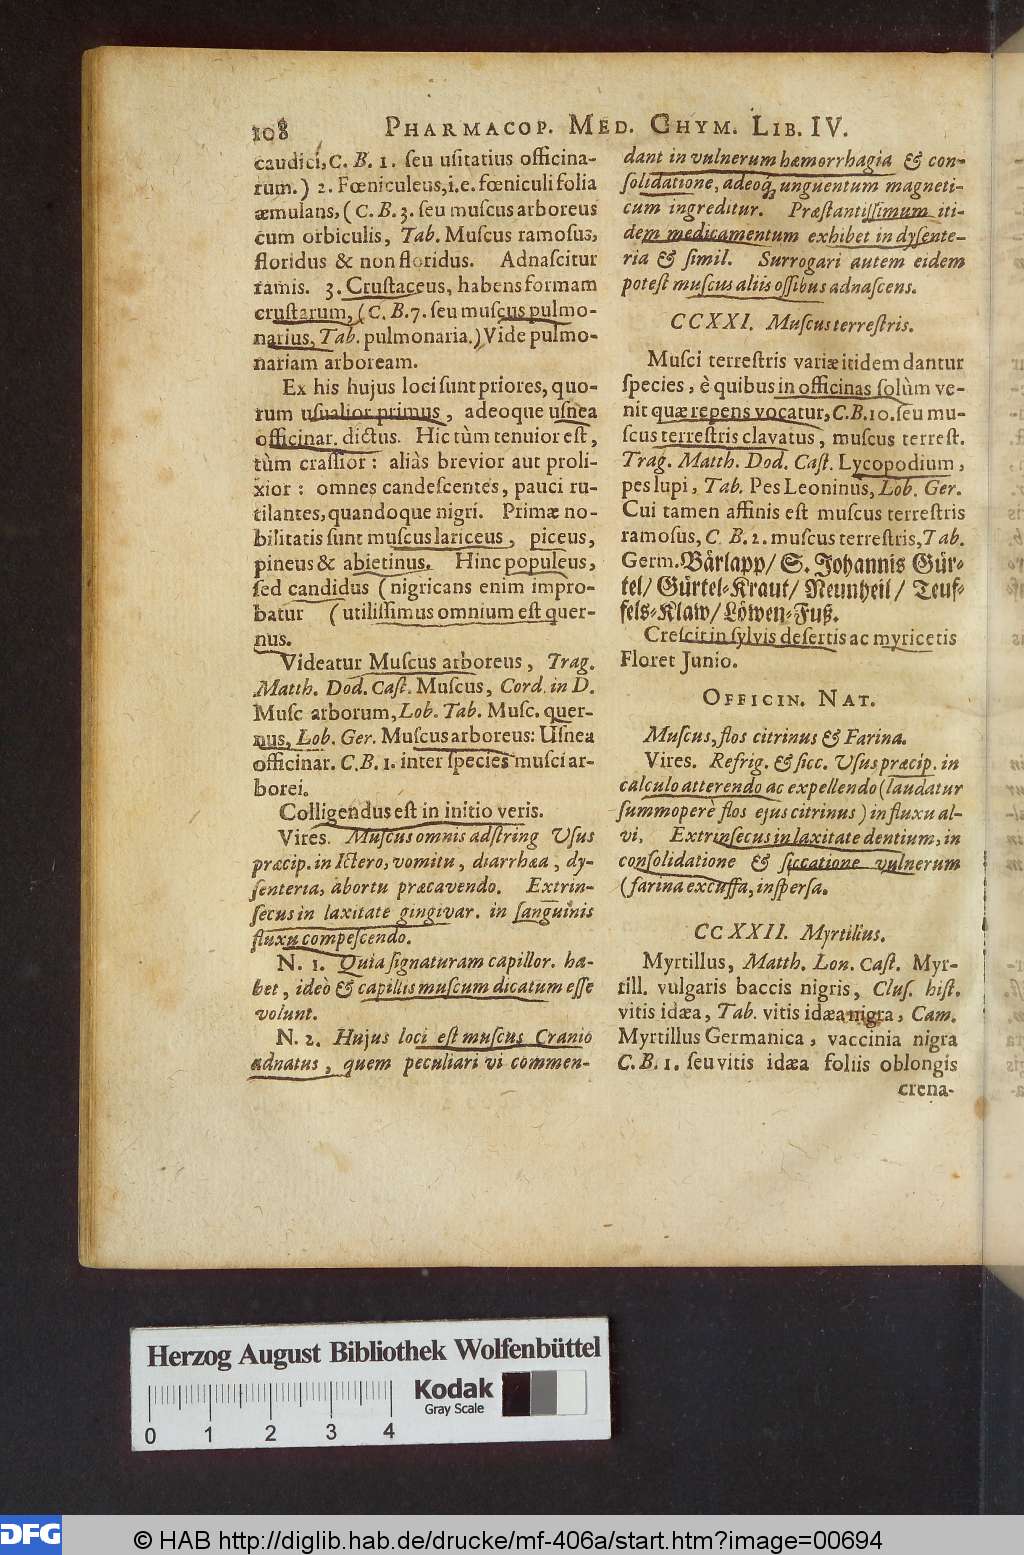 108 PHARMACOP. MED. CHYM. LIB. IV.
caudici, C. B. 1. ſeu uſitatius officina-
rum.) 2. Fœniculeus, i.e. fœniculi folia
æmulans, (C. B. 3. ſeu muſcus arboreus
cum orbiculis, Tab. Muſcus ramoſus,
floridus & non floridus. Adnaſcitur
ramis. 3. Cruſtaceus, habens formam
cruſtarum, (C. B. 7. ſeu muſcus pulmo-
narius, Tab. pulmonaria.) Vide pulmo-
nariam arboream.
Ex his hujus loci ſunt priores, quo-
rum uſualior primus, adeoque uſnea
officinar. dictus. Hic tùm tenuior eſt,
tùm craſſior: aliàs brevior aut proli-
xior: omnes candeſcentes, pauci ru-
tilantes, quandoque nigri. Primæ no-
bilitatis ſunt muſcus lariceus, piceus,
pineus & abietinus. Hinc populeus,
ſed candidus (nigricans enim impro-
batur (utiliſſimus omnium eſt quer-
nus.
Videatur Muſcus arboreus, Trag.
Matth. Dod. Caſt. Muſcus, Cord. in D.
Muſc arborum, Lob. Tab. Muſc. quer-
nus, Lob. Ger. Muſcus arboreus: Uſnea
officinar. C. B. 1. inter ſpecies muſci ar-
borei.
Colligendus eſt in initio veris.
Vires. Muſcus omnis adſtring Uſus
præcip. in Ictero, vomitu, diarrhæa, dy-
ſenteria, abortu præcavendo. Extrin-
ſecus in laxitate gingivar. in ſanguinis
fluxu compeſcendo.
N. 1. Quia ſignaturam capillor. ha-
bet, ideò & capillis muſcum dicatum eſſe
volunt.
N. 2. Hujus loci eſt muſcus Cranio
adnatus, quem peculiari vi commen-
dant in vulnerum hæmorrhagia & con-
ſolidatione, adeoq; unguentum magneti-
cum ingreditur. Præſtantiſſimum iti-
dem medicamentum exhibet in dyſente-
ria & ſimil. Surrogari autem eidem
poteſt muſcus aliis oſſibus adnaſcens.
CCXXI. Muſcus terreſtris.
Muſci terreſtris variæ itidem dantur
ſpecies, è quibus in officinas ſolùm ve-
nit quæ repens vocatur, C.B. 10. ſeu mu-
ſcus terreſtris clavatus, muſcus terreſt.
Trag. Matth. Dod. Caſt. Lycopodium,
pes lupi, Tab. Pes Leoninus, Lob. Ger.
Cui tamen affinis eſt muſcus terreſtris
ramoſus, C. B. 2. muſcus terreſtris, Tab.
Germ. Bärlapp/ S. Johannis Gür-
tel/ Gürtel-Kraut/ Neunheil/ Teuf-
fels-Klaw/ Löwen-Fuß.
Creſcit in ſylvis deſertis ac myricetis
Floret Junio.
OFFICIN. NAT.
Muſcus, flos citrinus & Farina.
Vires. Refrig. & ſicc. Uſus præcip. in
calculo atterendo ac expellendo (laudatur
ſummoperè flos ejus citrinus) in fluxu al-
vi, Extrinſecus in laxitate dentium, in
conſolidatione & ſiccatione vulnerum
(farina excuſſa, inſperſa.
CCXXII. Myrtillus.
Myrtillus, Matth. Lon. Caſt. Myr-
till. vulgaris baccis nigris, Cluſ. hiſt.
vitis idæa, Tab. vitis idæa nigra, Cam.
Myrtillus Germanica, vaccinia nigra
C. B. 1. ſeu vitis idæa foliis oblongis
crena-
Herzog August Bibliothek Wolfenbüttel
Kodak
Gray Scale
0 1 2 3 4
DFG
© HAB http://diglib.hab.de/drucke/mf-406a/start.htm?image=00694